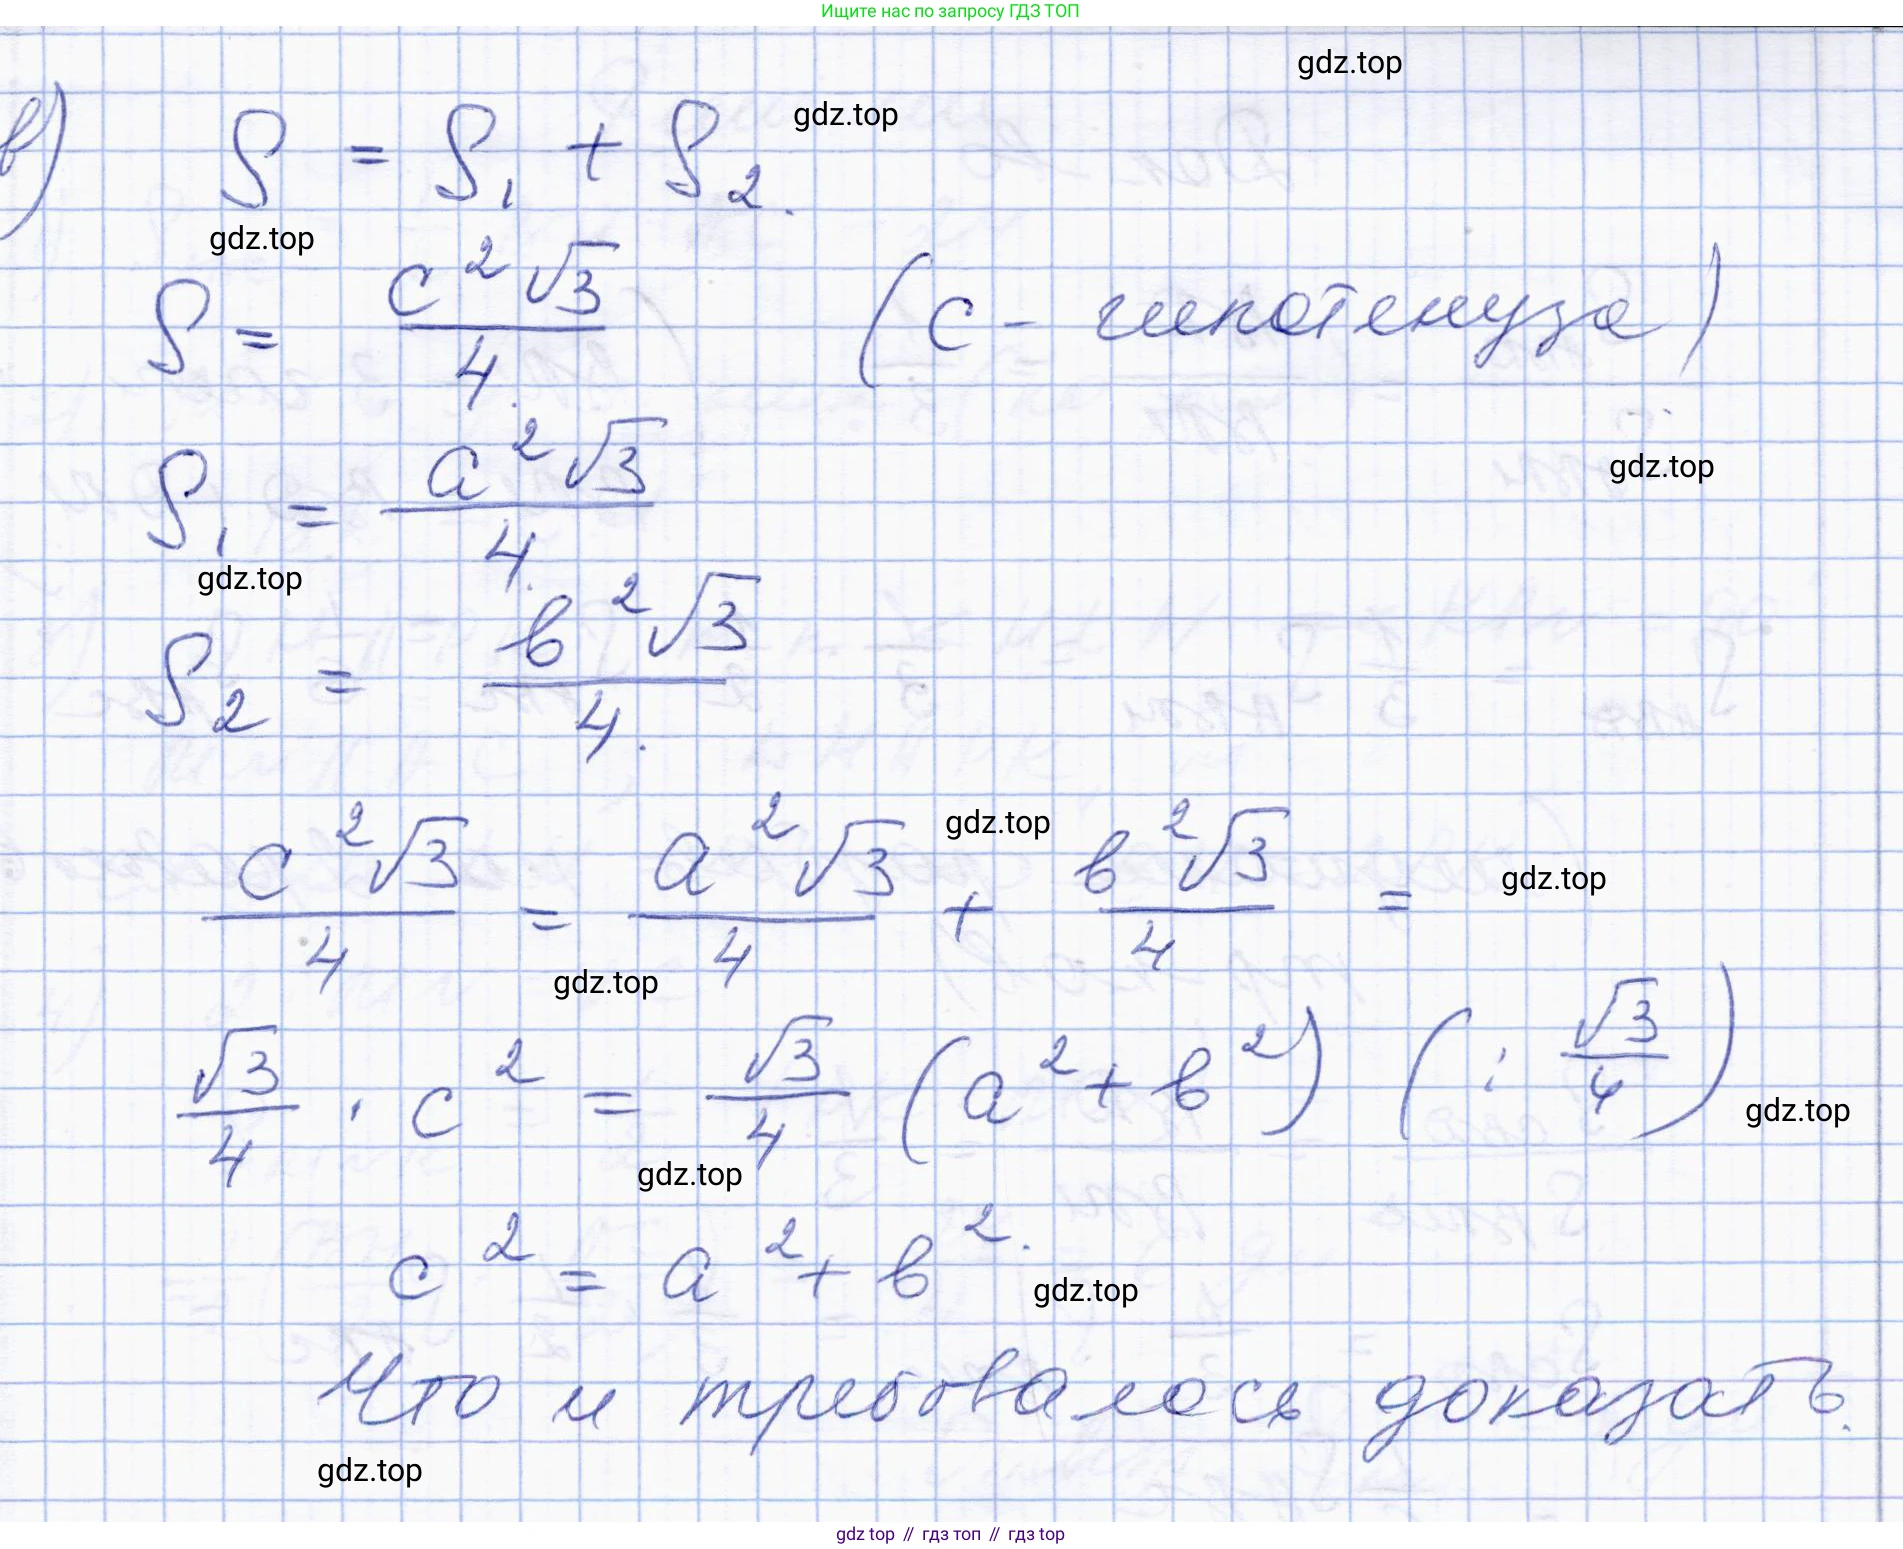 Ищите нас по запросу ГДЗ ТОП
gdz.top
в) S = S₁ + S₂.
gdz.top
gdz.top
S = c²√3/4. (c - гипотенуза)
S₁ = a²√3/4.
gdz.top
gdz.top
S₂ = в²√3/4.
c²√3/4 = a²√3/4 + в²√3/4 =
gdz.top
gdz.top
gdz.top
√3/4 · c² = √3/4 (a² + в²) (: √3/4)
gdz.top
gdz.top
c² = a² + в².
gdz.top
Что и требовалось доказать.
gdz.top
gdz top // гдз топ // гдз top